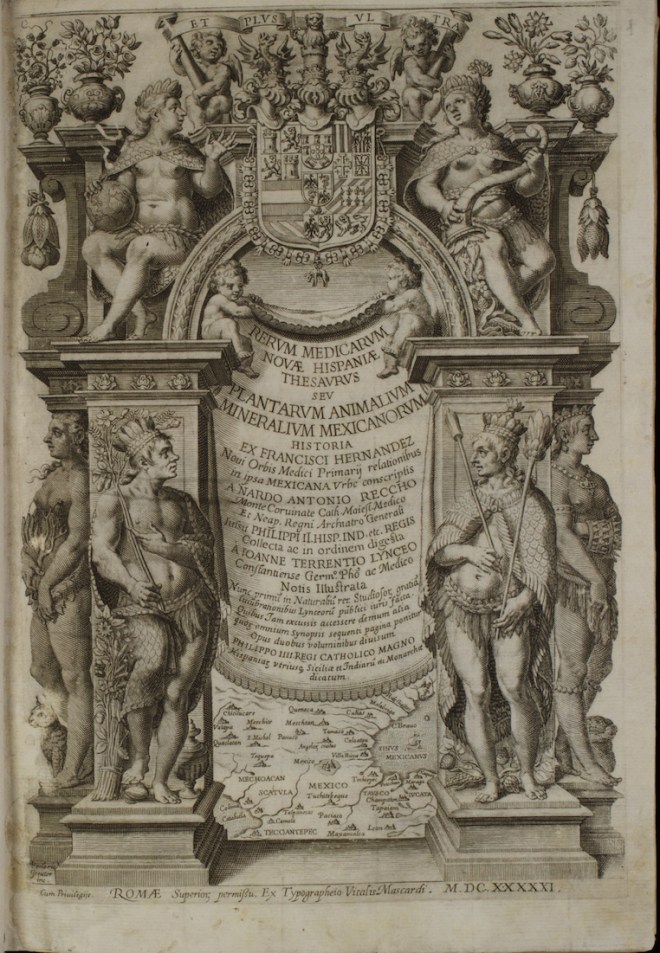 ET PLVS VL TRA
RERVM MEDICARVM
NOVÆ HISPANIÆ
THESAVRVS
SEV
PLANTARVM ANIMALIVM
MINERALIVM MEXICANORVM
HISTORIA
EX FRANCISCI HERNANDEZ
Noui Orbis Medici Primarij relationibus
in ipsa MEXICANA Vrbe conscriptis
A NARDO ANTONIO RECCHO
Monte Coruinate Cath. Maiest. Medico
Et Neap. Regni Archiatro Generali
Iussu PHILIPPI II. HISP. IND. etc. REGIS
Collecta ac in ordinem digesta
A IOANNE TERRENTIO LYNCEO
Constantiense Germ. Pho ac Medico
Notis Illustrata
Nunc primū in Naturaliū rer. Studiosor. gratiā
lucubrationibus Lynceorū publici iuris facta.
Quibus Iam excussis accessere demum alia
quor. omnium Synopsis sequenti pagina ponitur
Opus duobus voluminibus diuisum
PHILIPPO IIII. REGI CATHOLICO MAGNO
Hispaniar. vtriusq. Siciliæ et Indiarū etc. Monarchæ
dicatum.
Mechoacan
SCATVLA
MEXICO
Mexico
VillaRicca
MEXICANVS
IVCATA
TECOANTEPEC
Cum Priuilegijs. ROMÆ Superior. permissu. Ex Typographeio Vitalis Mascardi. M. DC. XXXXXI.